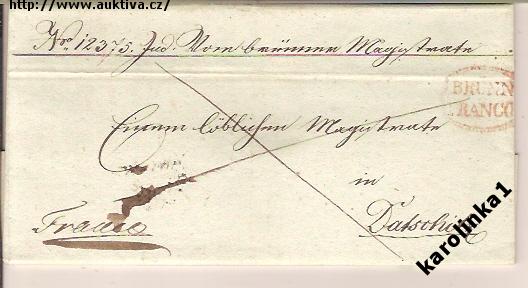 http://www.auktiva.cz/
Nro. 12375. Jud. Vom brünner Magistrate
BRÜNN
FRANCO
Einem löblichen Magistrate
in
Franco
Datschitz
karolinka1